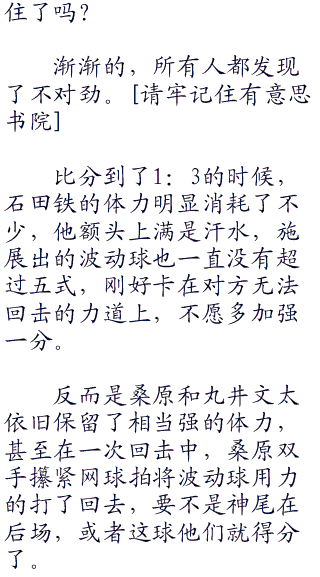 住了吗？
渐渐的，所有人都发现
了不对劲。[请牢记住有意思
书院]
比分到了1：3的时候，
石田铁的体力明显消耗了不
少，他额头上满是汗水，施
展出的波动球也一直没有超
过五式，刚好卡在对方无法
回击的力道上，不愿多加强
一分。
反而是桑原和丸井文太
依旧保留了相当强的体力，
甚至在一次回击中，桑原双
手攥紧网球拍将波动球用力
的打了回去，要不是神尾在
后场，或者这球他们就得分
了。